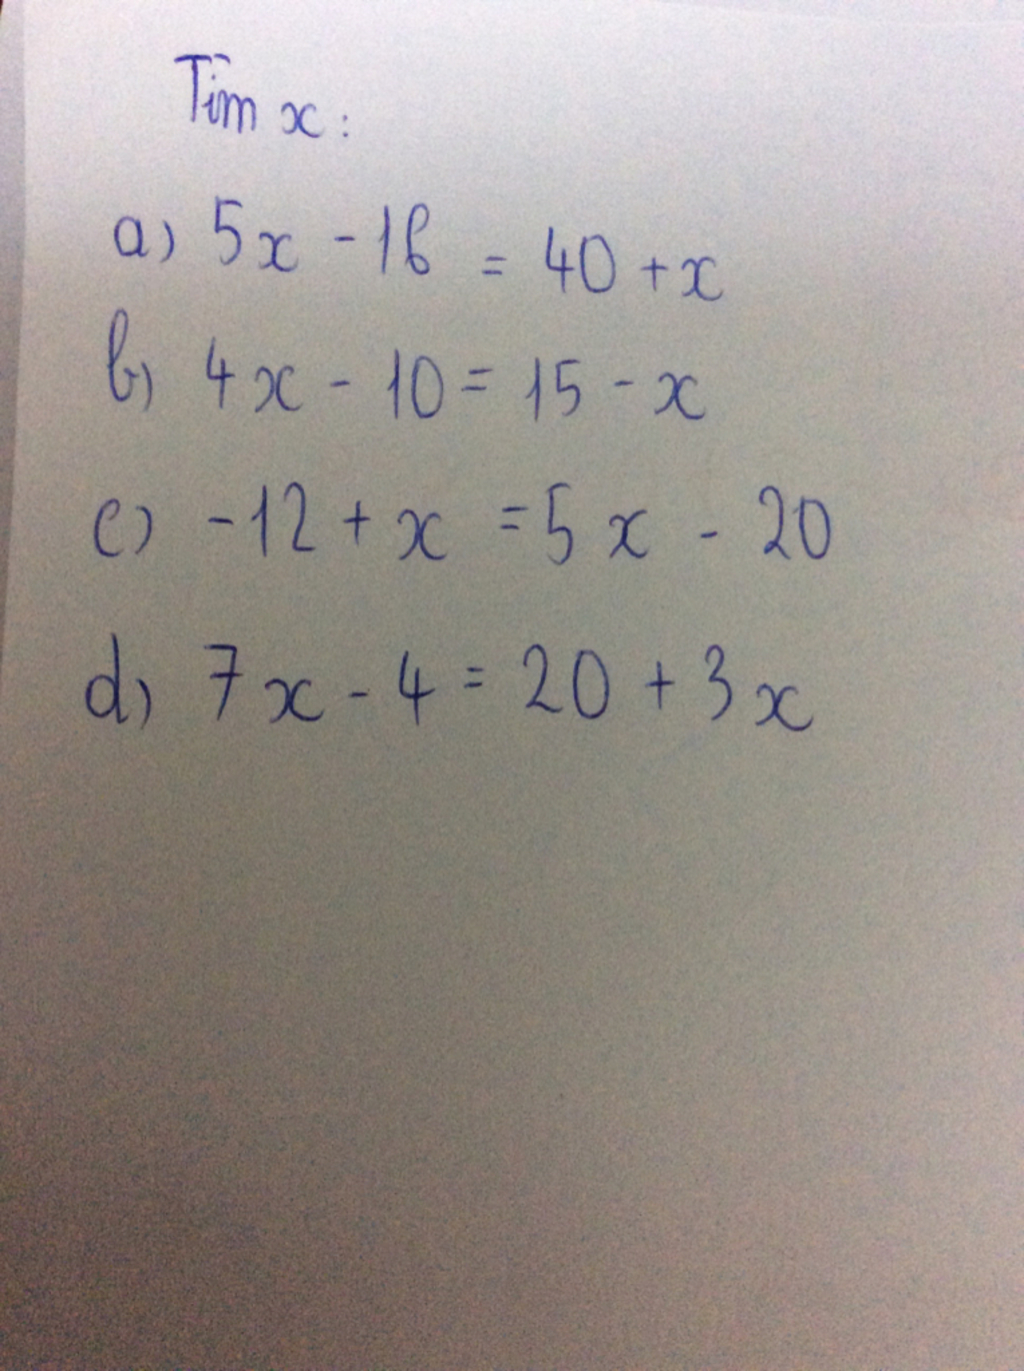 Tìm x:
a) 5x - 16 = 40 + x
b) 4x - 10 = 15 - x
c) -12 + x = 5x - 20
d) 7x - 4 = 20 + 3x